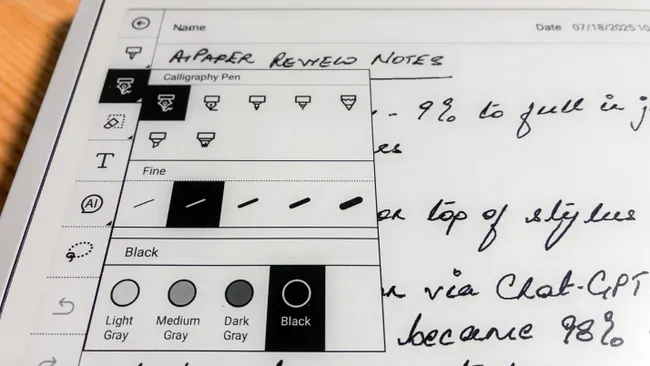 Name Date 07/18/2025 10
AIPAPER REVIEW NOTES
Calligraphy Pen
- 9% to full in j
es
Fine
T
on top of stylus
AI
Black
via Chat-GPT
Light Gray Medium Gray Dark Gray Black
became 98%